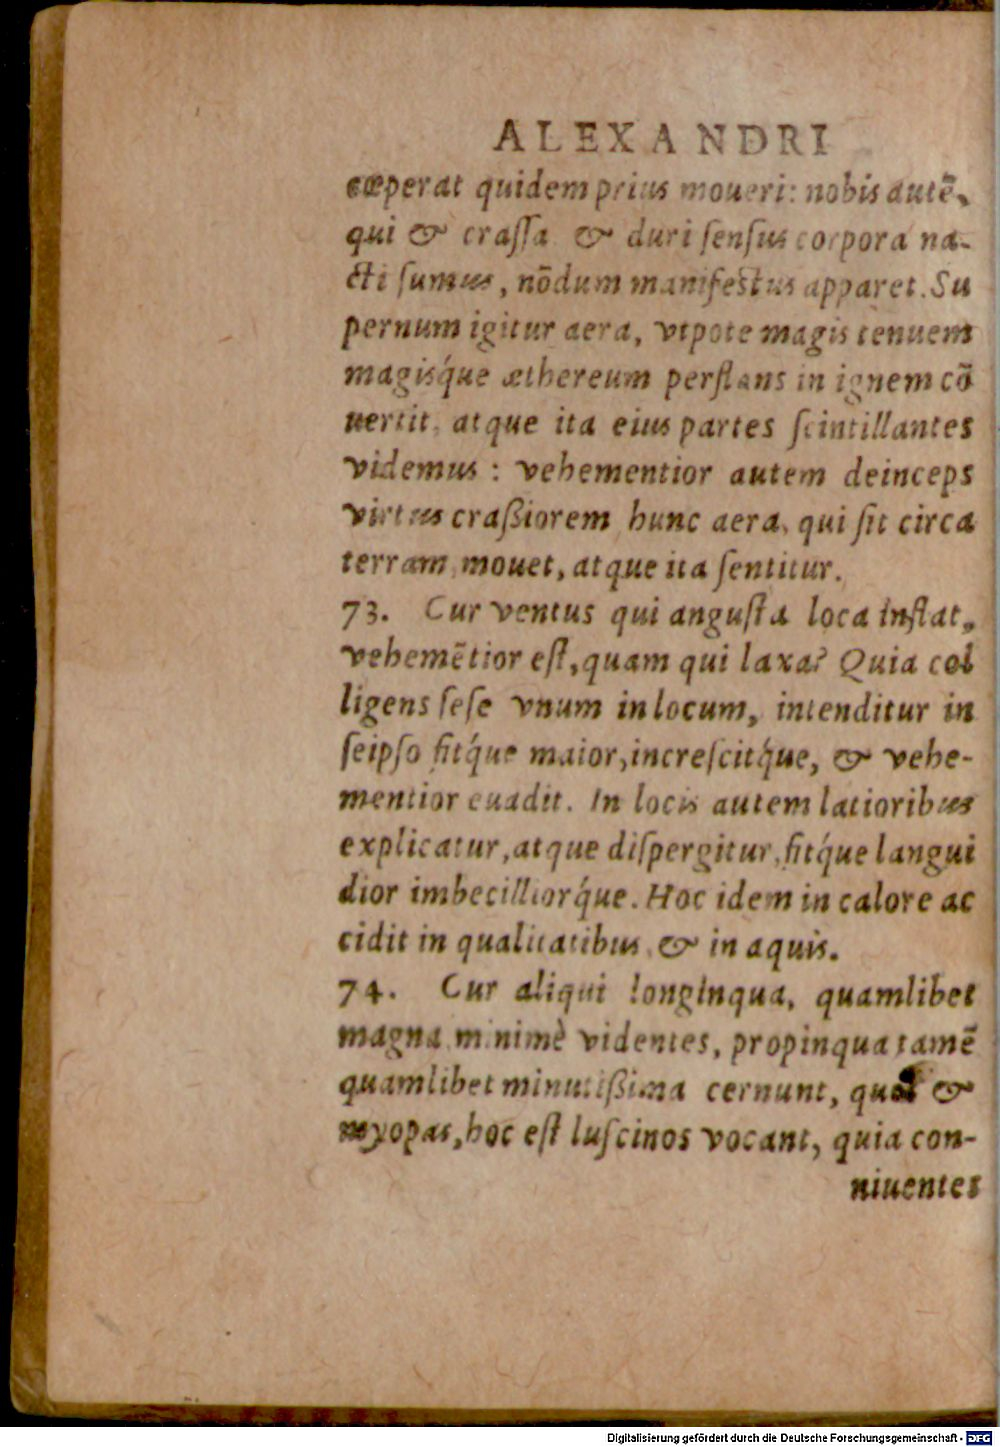 ALEXANDRI
cœperat quidem prius moueri: nobis autē,
qui & crassa & duri sensus corpora na-
cti sumus, nōdum manifestus apparet. Su
pernum igitur aera, vtpote magis tenuem
magisq́ue æthereum perflans in ignem cō
uertit, atque ita eius partes scintillantes
videmus : vehementior autem deinceps
virtus craßiorem hunc aera, qui sit circa
terram mouet, atque ita sentitur.
73. Cur ventus qui angusta loca inflat,
vehemētior est, quam qui laxa? Quia col
ligens sese vnum in locum, intenditur in
seipso fitq́ue maior, increscitq́ue, & vehe-
mentior euadit. In locis autem latioribus
explicatur, atque dispergitur, fitq́ue langui
dior imbecilliorq́ue. Hoc idem in calore ac
cidit in qualitatibus & in aquis.
74. Cur aliqui longinqua, quamlibet
magna minimè videntes, propinqua tamē
quamlibet minutißima cernunt, quos &
myopas, hoc est luscinos vocant, quia con-
niuentes
Digitalisierung gefördert durch die Deutsche Forschungsgemeinschaft - DFG